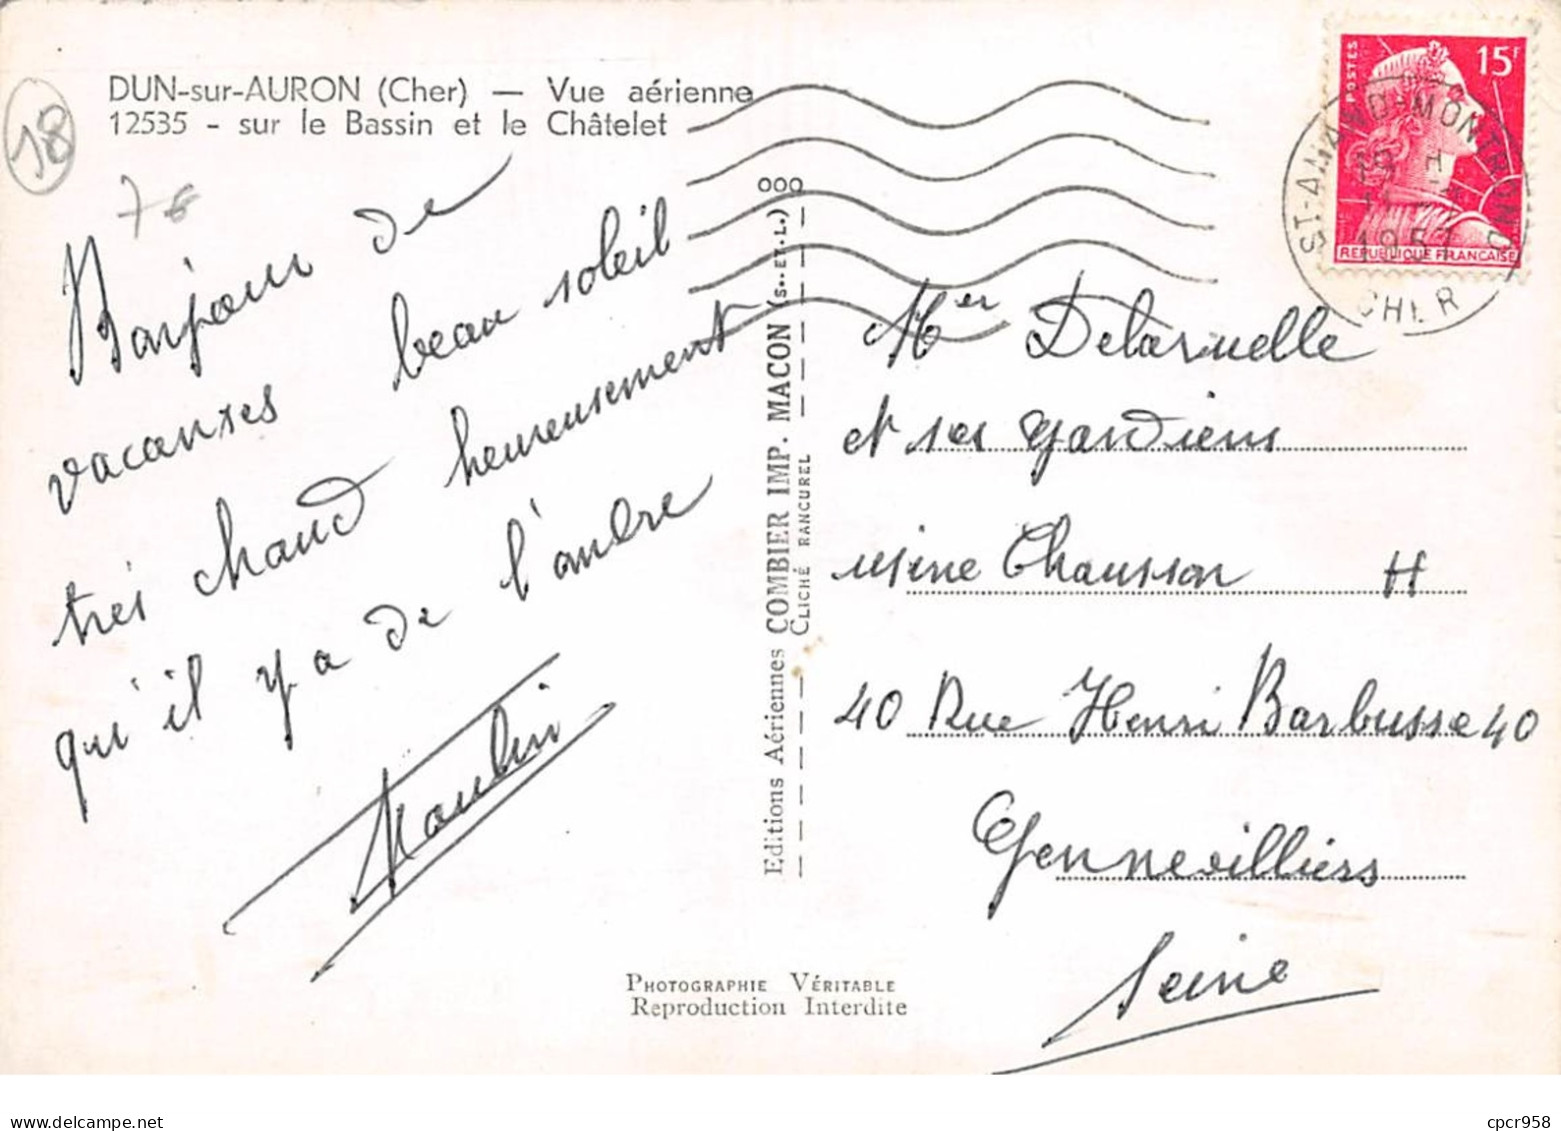 DUN-sur-AURON (Cher) — Vue aérienne
12535 - sur le Bassin et le Châtelet
18
Bonjour de
vacances beau soleil
très chaud heureusement
qu'il y a de l'ombre
Editions Aériennes COMBIER IMP. MACON (S.-ET-L.) OOO
CLICHÉ RANCUREL
PHOTOGRAPHIE VÉRITABLE
Reproduction Interdite
POSTES 15F
REPUBLIQUE FRANÇAISE
ST-AMAND-MONTROND
19 H
1957
CHER
Mer Delaruelle
et ses gardiens
usine Chausson H
40 Rue Henri Barbusse 40
Gennevilliers
Seine
cpcr958